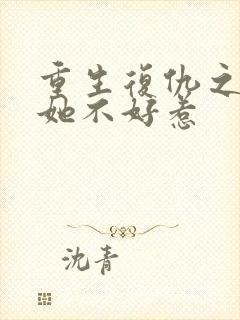 重生復仇之
她不好惹
沈青